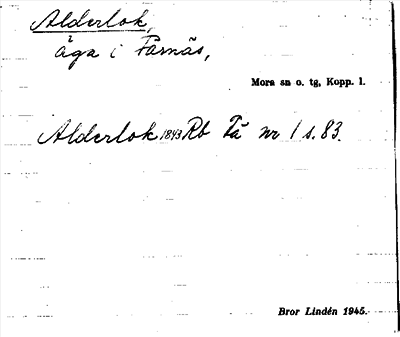 Alderlok,
äga i Färnäs,
Mora sn o. tg, Kopp. l.
Alderlok 1843 Rb Fä nr 1 s. 83.
Bror Lindén 1945.